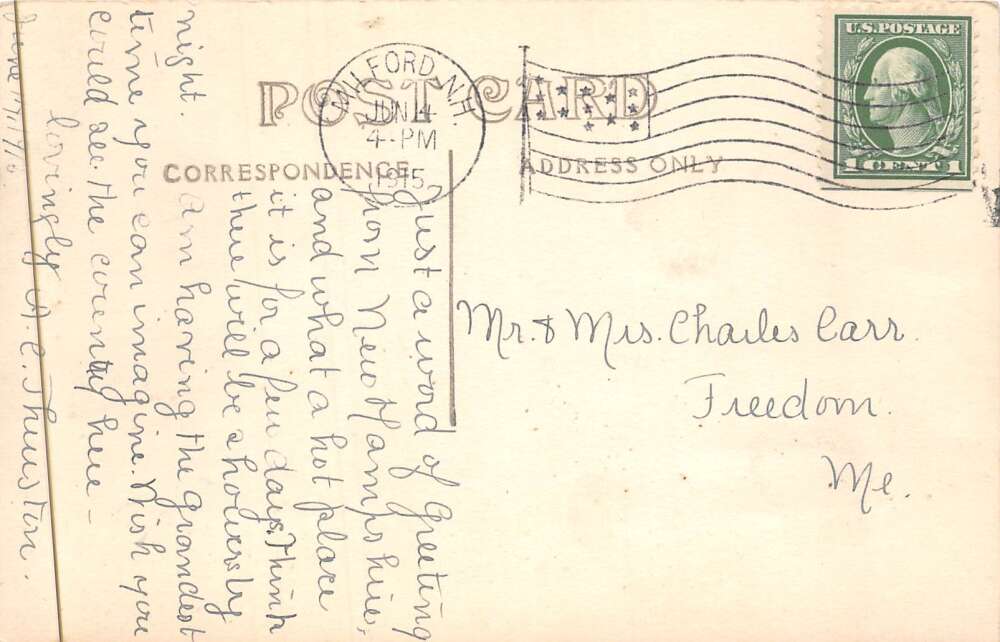 POST CARD
CORRESPONDENCE
ADDRESS ONLY
MILFORD, N.H.
JUN 4
4-PM
1915
U.S. POSTAGE
1 CENT 1
Just a word of greeting
from New Hampshire,
and what a hot place
it is for a few days. Think
there will be showers by
night.
Am having the grandest
time you can imagine. Wish you
could see the country here -
lovingly A. C. Thurston.
June
Mr. & Mrs. Charles Carr.
Freedom.
Me.